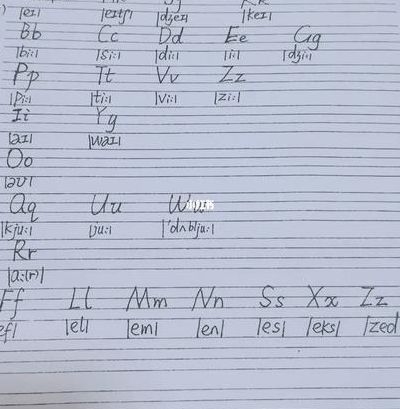 |eɪ| |eɪtʃ| |dʒeɪ| |keɪ|
Bb Cc Dd Ee Gg
|biː| |siː| |diː| |iː| |dʒiː|
Pp Tt Vv Zz
|piː| |tiː| |viː| |ziː|
Ii Yy
|aɪ| |waɪ|
Oo
|əʊ|
Qq Uu Ww
|kjuː| |juː| |'dʌbljuː|
Rr
|ɑː(r)|
Ff Ll Mm Nn Ss Xx Zz
ef| |el| |em| |en| |es| |eks| |zed